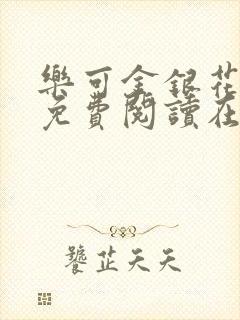 樂可金銀花
免費閱讀在
饕芷天天